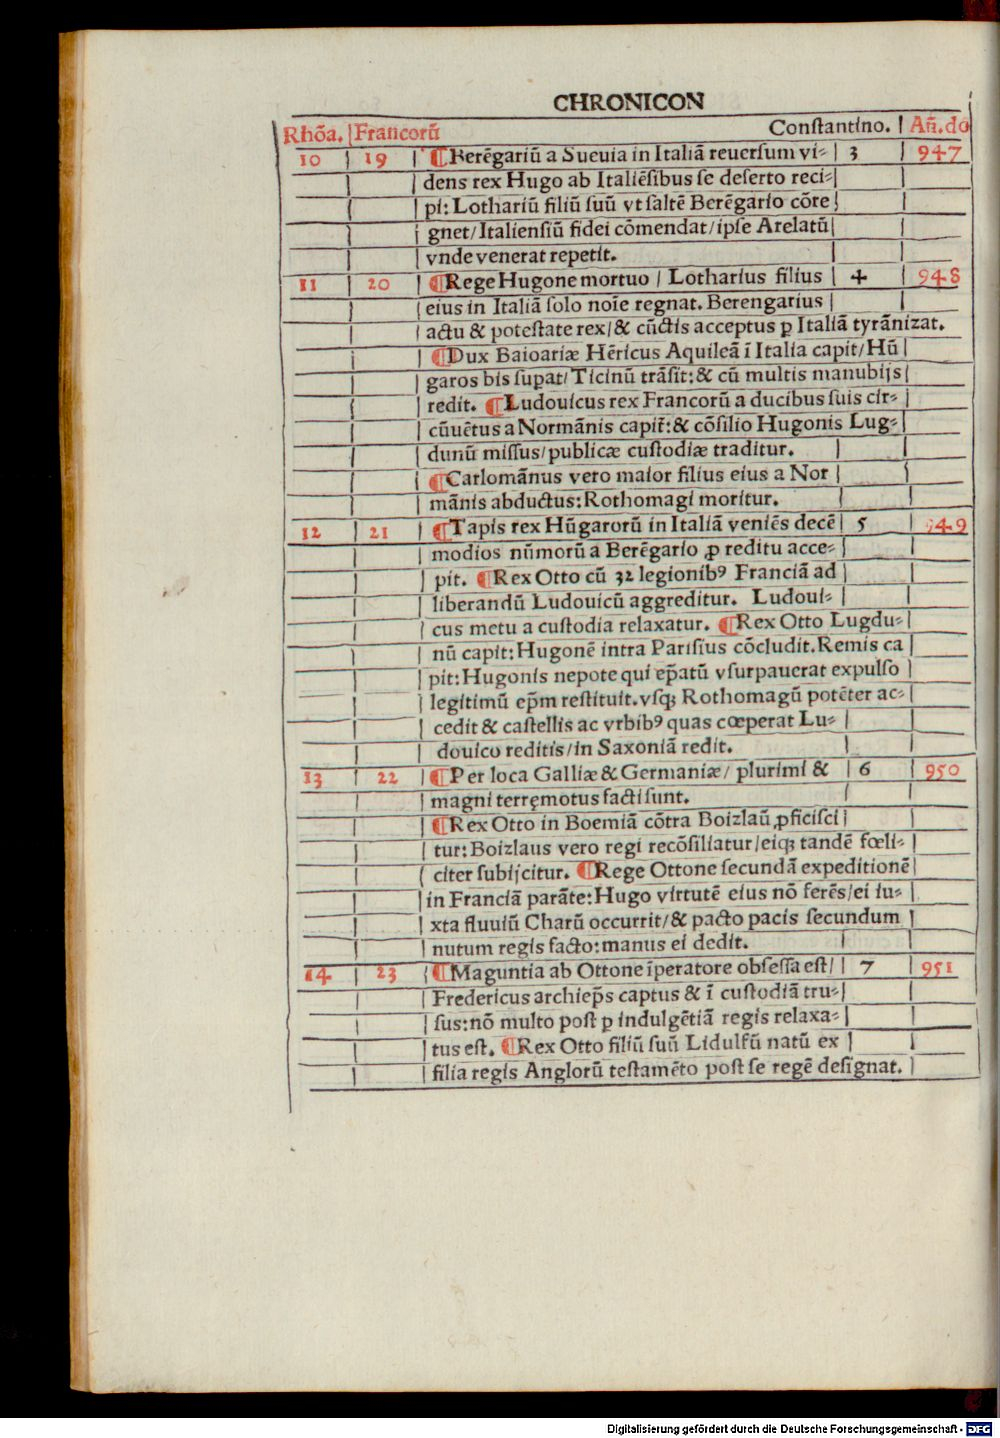 CHRONICON
Rhõa. Francorũ Constantino. Añ. do
10 19 ¶ Berẽgariũ a Sueuia in Italiã reuersum vi- 3 947
dens rex Hugo ab Italiẽsibus se deserto reci-
pi: Lothariũ filiũ suũ vt saltẽ Berẽgario cõre
gnet/ Italiensiũ fidei cõmendat/ ipse Arelatũ
vnde venerat repetit.
11 20 ¶ Rege Hugone mortuo / Lotharius filius 4 948
eius in Italiã solo noĩe regnat. Berengarius
actu & potestate rex/ & cũctis acceptus ꝑ Italiã tyrãnizat.
¶ Dux Baioariæ Hẽricus Aquileã ĩ Italia capit/ Hũ
garos bis suꝑat/ Ticinũ trãsit: & cũ multis manubijs
redit. ¶ Ludouicus rex Francorũ a ducibus suis cir-
cũuẽtus a Normãnis capit̃: & cõsilio Hugonis Lug-
dunũ missus/ publicæ custodiæ traditur.
¶ Carlomãnus vero maior filius eius a Nor
mãnis abductus: Rothomagi moritur.
12 21 ¶ Tapis rex Hũgarorũ in Italiã veniẽs decẽ 5 949
modios nũmorũ a Berẽgario ꝓ reditu acce-
pit. ¶ Rex Otto cũ 32 legionibꝰ Franciã ad
liberandũ Ludouicũ aggreditur. Ludoui-
cus metu a custodia relaxatur. ¶ Rex Otto Lugdu-
nũ capit: Hugonẽ intra Parisius cõcludit. Remis ca
pit: Hugonis nepote qui ep̃atũ vsurpauerat expulso
legitimũ ep̃m restituit. vsqꝫ Rothomagũ potẽter ac-
cedit & castellis ac vrbibꝰ quas cœperat Lu-
douico reditis/ in Saxoniã redit.
13 22 ¶ Per loca Galliæ & Germaniæ/ plurimi & 6 950
magni terręmotus facti sunt.
¶ Rex Otto in Boemiã cõtra Boizlaũ ꝓficisci
tur: Boizlaus vero regi recõsiliatur/ eiqꝫ tandẽ fœli-
citer subijcitur. ¶ Rege Ottone secundã expeditionẽ
in Franciã parãte: Hugo virtutẽ eius nõ ferẽs/ ei iu-
xta fluuiũ Charũ occurrit/ & pacto pacis secundum
nutum regis facto: manus ei dedit.
14 23 ¶ Maguntia ab Ottone ĩperatore obsessa est/ 7 951
Fredericus archiep̃s captus & ĩ custodiã tru-
sus: nõ multo post ꝑ indulgẽtiã regis relaxa-
tus est. ¶ Rex Otto filiũ suũ Lidulfũ natũ ex
filia regis Anglorũ testamẽto post se regẽ designat.
Digitalisierung gefördert durch die Deutsche Forschungsgemeinschaft - DFG